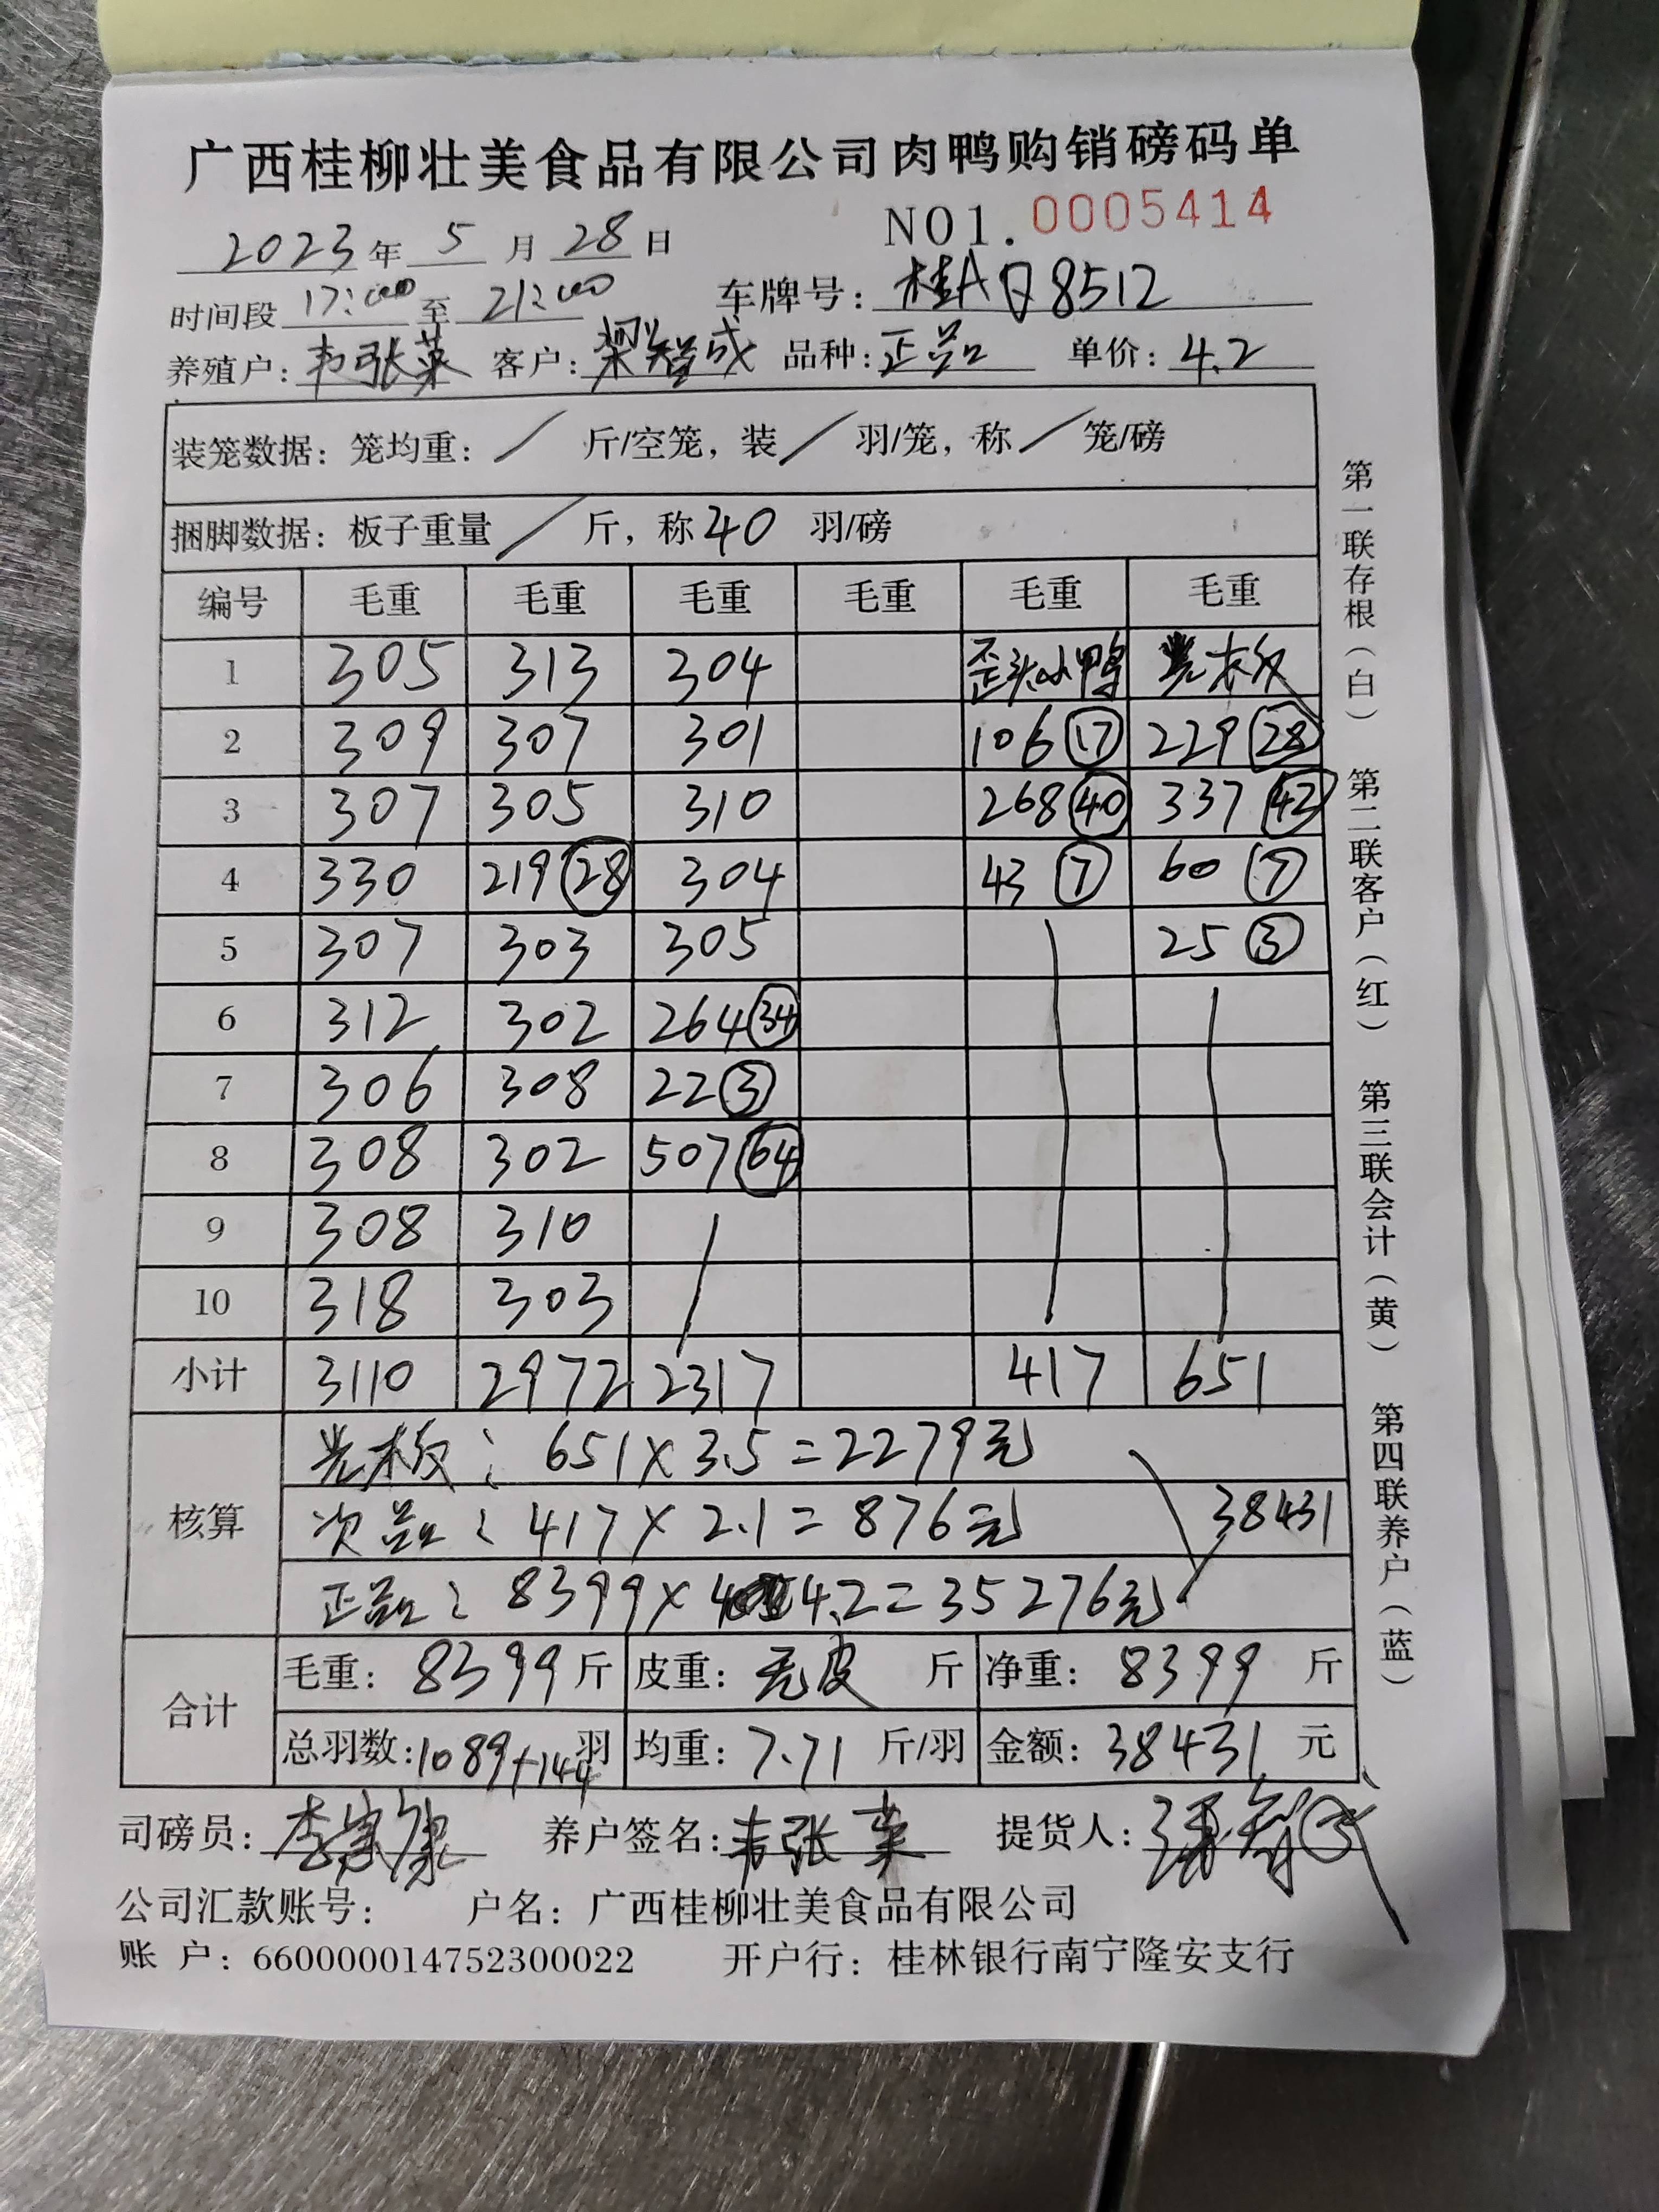 广西桂柳壮美食品有限公司肉鸭购销磅码单
2023年 5 月 28 日 NO1. 0005414
时间段 17:00 至 21:00 车牌号: 桂AQ8512
养殖户: 韦张英 客户: 梁智成 品种: 正品 单价: 4.2
装笼数据: 笼均重: / 斤/空笼, 装 / 羽/笼, 称 / 笼/磅
捆脚数据: 板子重量 / 斤, 称 40 羽/磅
编号 毛重 毛重 毛重 毛重 毛重 毛重
1 305 313 304 歪头小鸭 光木板
2 309 307 301 106 17 229 28
3 307 305 310 268 40 337 42
4 330 219 28 304 43 7 60 7
5 307 303 305 25 3
6 312 302 264 34
7 306 308 22 3
8 308 302 507 64
9 308 310
10 318 303
小计 3110 2972 2317 417 651
核算
光木板: 651×3.5=2279元
次品: 417×2.1=876元 38431
正品: 8399× 4.2=35276元
合计
毛重: 8399 斤 皮重: 无皮 斤 净重: 8399 斤
总羽数: 1089+144 羽 均重: 7.71 斤/羽 金额: 38431 元
司磅员: 养户签名: 韦张英 提货人:
公司汇款账号: 户名: 广西桂柳壮美食品有限公司
账 户: 660000014752300022 开户行: 桂林银行南宁隆安支行
第一联存根(白) 第二联客户(红) 第三联会计(黄) 第四联养户(蓝)